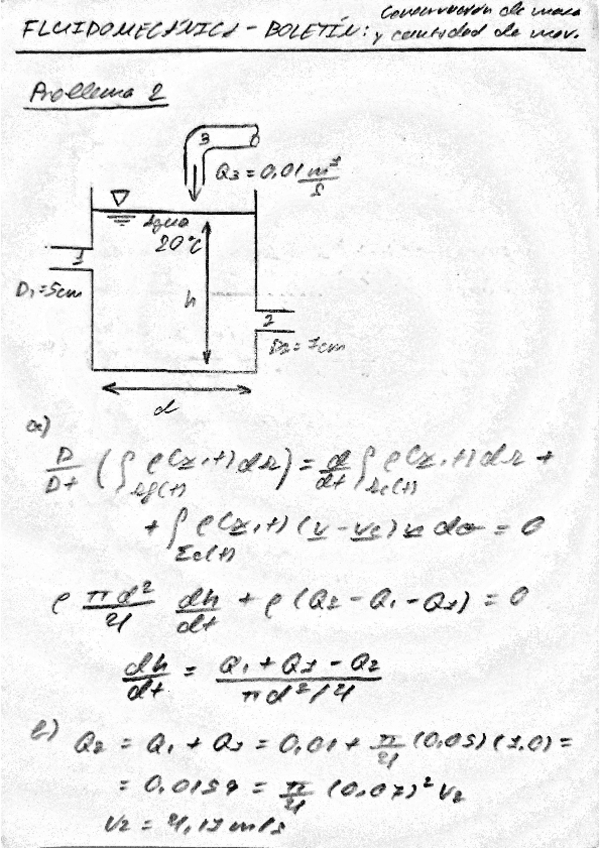 Conservación de masa
FLUIDOMECÁNICA - BOLETÍN: y cantidad de mov.
Problema 2
3
Q3 = 0,01 m³/s
Agua
20°C
1
D1=5cm
h
2
D2=7cm
d
a)
D/Dt (∫Ωf(t) ρ(x,t)dΩ) = d/dt ∫Ωc(t) ρ(x,t)dΩ +
+ ∫Σc(t) ρ(x,t) (v - vc) n dσ = 0
ρ πd²/4 dh/dt + ρ(Q2 - Q1 - Q3) = 0
dh/dt = (Q1 + Q3 - Q2)/(πd²/4)
b) Q2 = Q1 + Q3 = 0,01 + π/4 (0,05)(3,0) =
= 0,0159 = π/4 (0,07)² V2
V2 = 4,13 m/s